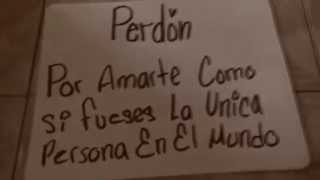 Perdón
Por Amarte Como
si fueses La Unica
Persona En El Mundo